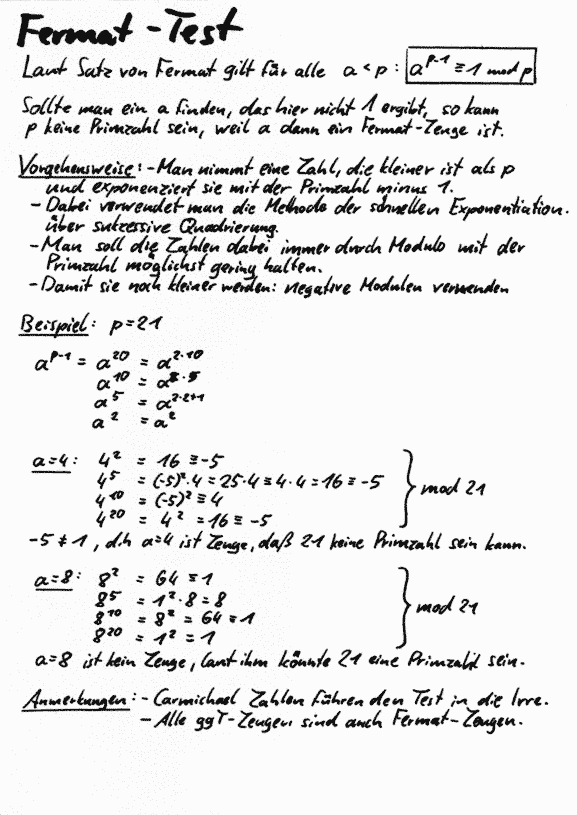 Fermat-Test
Laut Satz von Fermat gilt für alle a < p : a^(p-1) ≡ 1 mod p
Sollte man ein a finden, das hier nicht 1 ergibt, so kann
p keine Primzahl sein, weil a dann ein Fermat-Zeuge ist.
Vorgehensweise: - Man nimmt eine Zahl, die kleiner ist als p
und exponenziert sie mit der Primzahl minus 1.
- Dabei verwendet man die Methode der schnellen Exponentiation.
über sukzessive Quadrierung.
- Man soll die Zahlen dabei immer durch Modulo mit der
Primzahl möglichst gering halten.
- Damit sie noch kleiner werden: negative Modulen verwenden
Beispiel: p=21
a^(p-1) = a^20 = a^(2·10)
a^10 = a^(2·5)
a^5 = a^(2·2+1)
a^2 = a^2
a=4: 4^2 = 16 ≡ -5
4^5 = (-5)^2·4 = 25·4 ≡ 4·4 = 16 ≡ -5
4^10 = (-5)^2 ≡ 4
4^20 = 4^2 = 16 ≡ -5
} mod 21
-5 ≠ 1, d.h a=4 ist Zeuge, daß 21 keine Primzahl sein kann.
a=8: 8^2 = 64 ≡ 1
8^5 = 1^2·8 = 8
8^10 = 8^2 = 64 ≡ 1
8^20 = 1^2 = 1
} mod 21
a=8 ist kein Zeuge, laut ihm könnte 21 eine Primzahl sein.
Anmerkungen: - Carmichael Zahlen führen den Test in die Irre.
- Alle ggT-Zeugen sind auch Fermat-Zeugen.